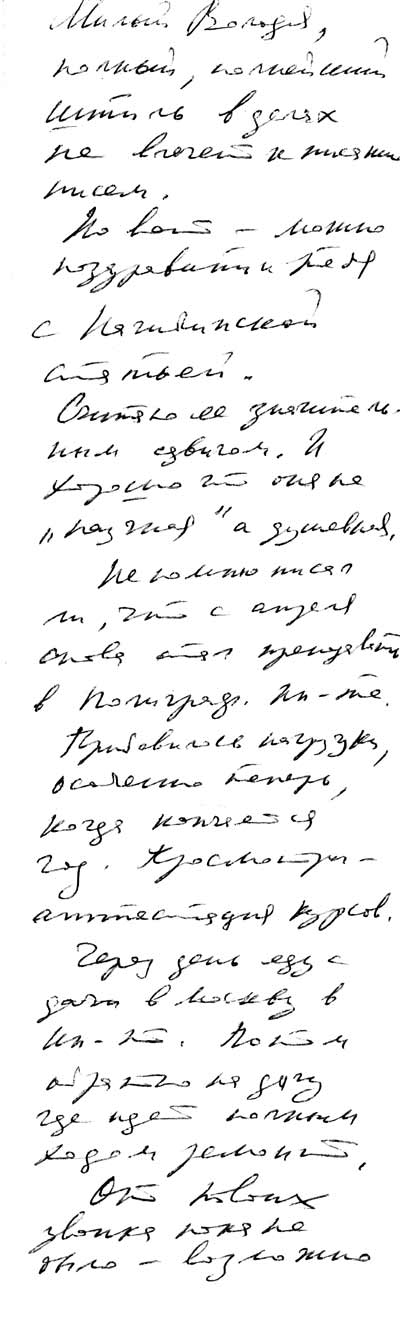 Милый Володя,
полный, полнейший
штиль в делах
не влечет к писанию
писем.
Но вот – можно
поздравить и тебя
с
статьей.
Считаю ее значитель-
ным сдвигом. И
хорошо что она не
„научная" а душевная.
Не помню писал
ли, что с апреля
снова стал преподавать
в Полиграф. Ин-те.
Прибавилось нагрузки,
особенно теперь,
когда кончается
год. Просмотры –
аттестация курсов.
Через день еду с
дачи в Москву в
Ин-т. Потом
обратно на дачу
где идет полным
ходом ремонт.
От твоих
звонка пока не
было – возможно